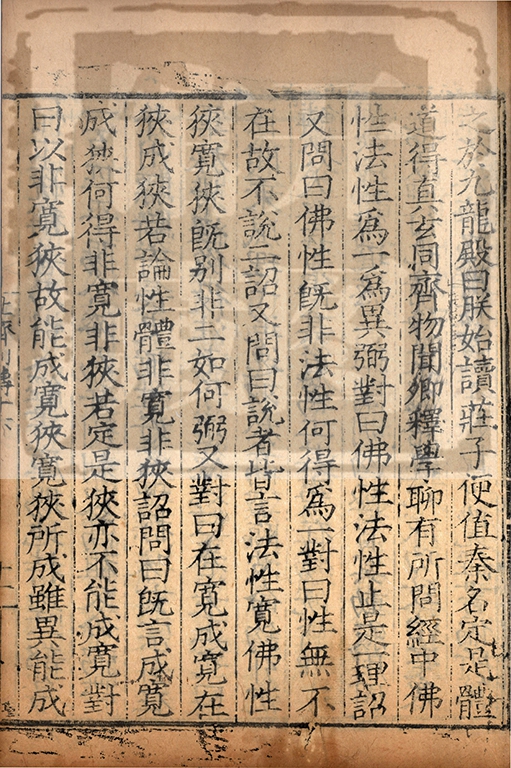 之於九龍殿曰朕始讀莊子便值秦名定是體
道得真玄同齊物聞卿釋學聊有所問經中佛
性法性爲一爲異弼對曰佛性法性止是一理詔
又問曰佛性既非法性何得爲一對曰性無不
在故不說二詔又問曰說者皆言法性寬佛性
狹寬狹既別非二如何弼又對曰在寬成寬在
狹成狹若論性體非寬非狹詔問曰既言成寬
成狹何得非寬非狹若定是狹亦不能成寬對
曰以非寬狹故能成寬狹寬狹所成雖異能成